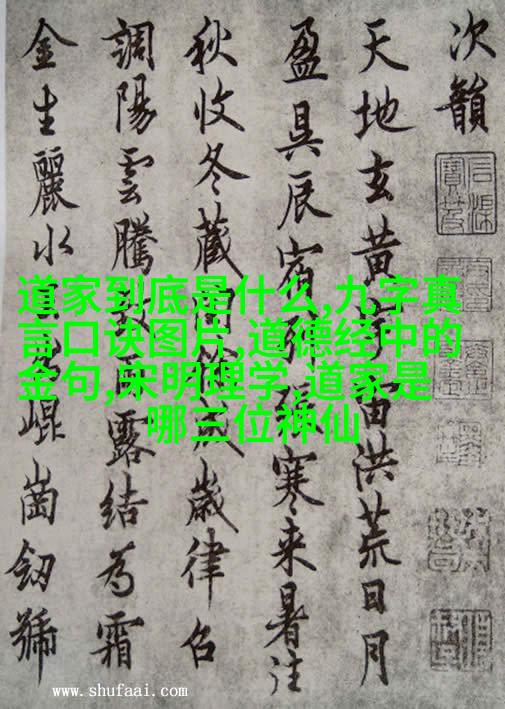 次韻
天地玄黄宙洪荒日月
盈昃辰宿張寒来暑往
秋收冬藏閏歲律召
調陽雲騰致雨露結為霜
金生麗水崑崗劒號
道家到底是什么,九字真
言口诀图片,道德经中的
金句,宋明理学,道家是
哪三位神仙
www.shufaai.com